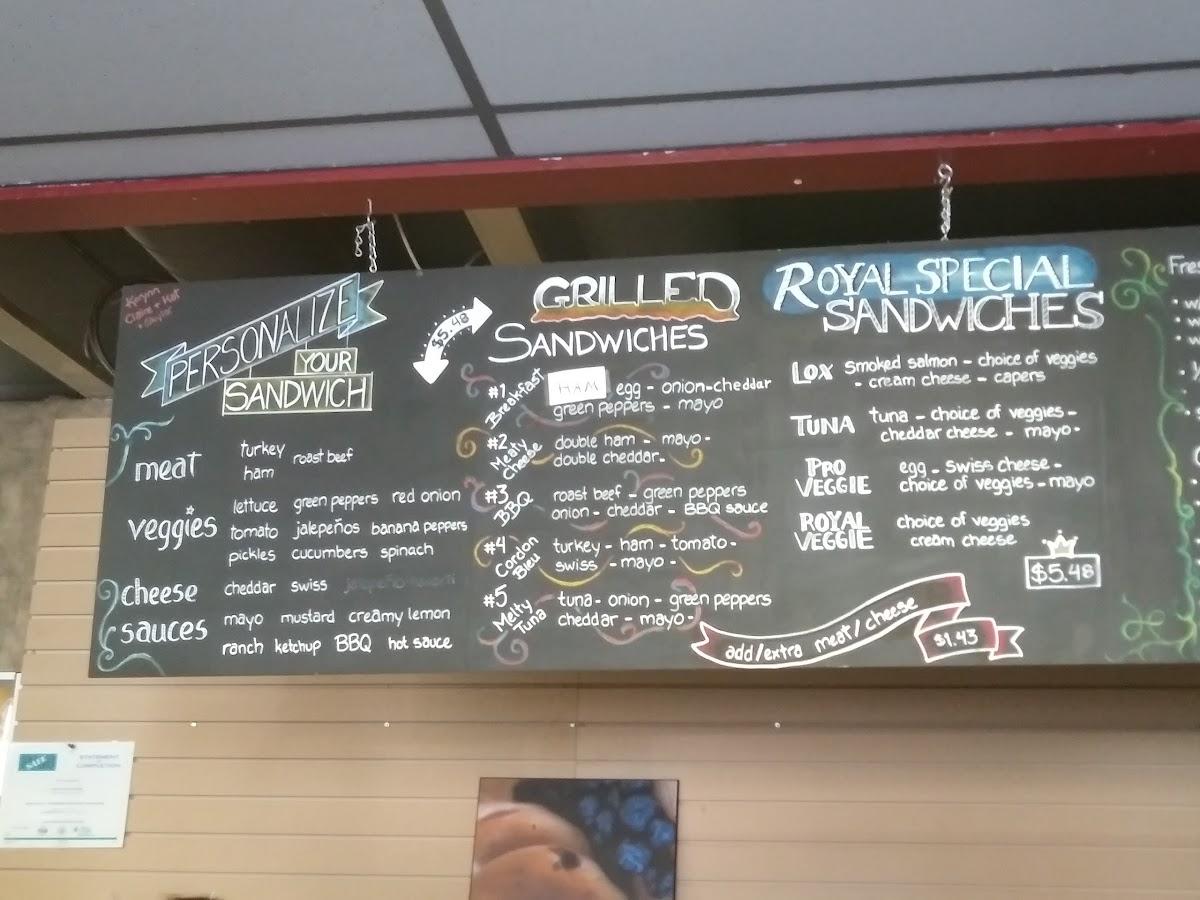 Claire + Kat
PERSONALIZE
YOUR
SANDWICH
$5.48
meat
turkey
roast beef
ham
veggies
lettuce green peppers red onion
tomato jalepeños banana peppers
pickles cucumbers spinach
cheese
cheddar swiss
sauces
mayo mustard creamy lemon
ranch ketchup BBQ hot sauce
GRILLED
SANDWICHES
#1 Breakfast
HAM egg - onion-cheddar
green peppers - mayo
#2 Meaty Cheese
double ham - mayo -
double cheddar -
#3 BBQ
roast beef - green peppers
onion - cheddar - BBQ sauce
#4 Cordon Bleu
turkey - ham - tomato -
swiss - mayo -
#5 Melty Tuna
tuna - onion - green peppers
cheddar - mayo -
ROYAL SPECIAL
SANDWICHES
LOX
Smoked salmon - choice of veggies
- cream cheese - capers
TUNA
tuna - choice of veggies -
cheddar cheese - mayo -
PRO
VEGGIE
egg - swiss cheese -
choice of veggies - mayo
ROYAL
VEGGIE
choice of veggies
cream cheese
$5.48
add/extra meat/cheese
$1.43
STATEMENT
COMPLETION